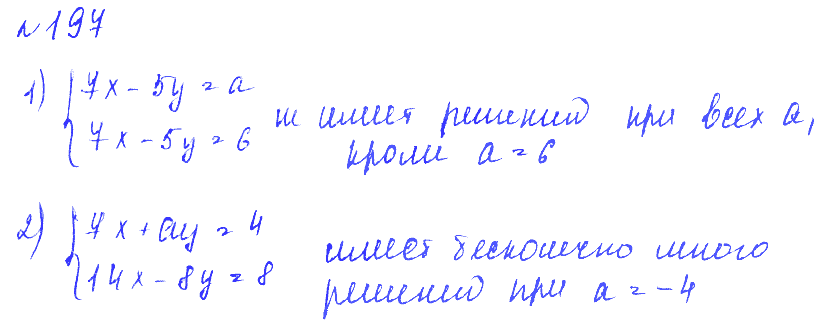 №197
1) { 7x - 5y = a
7x - 5y = 6 не имеет решений при всех a,
кроме a = 6
2) { 7x + ay = 4
14x - 8y = 8 имеет бесконечно много
решений при a = -4